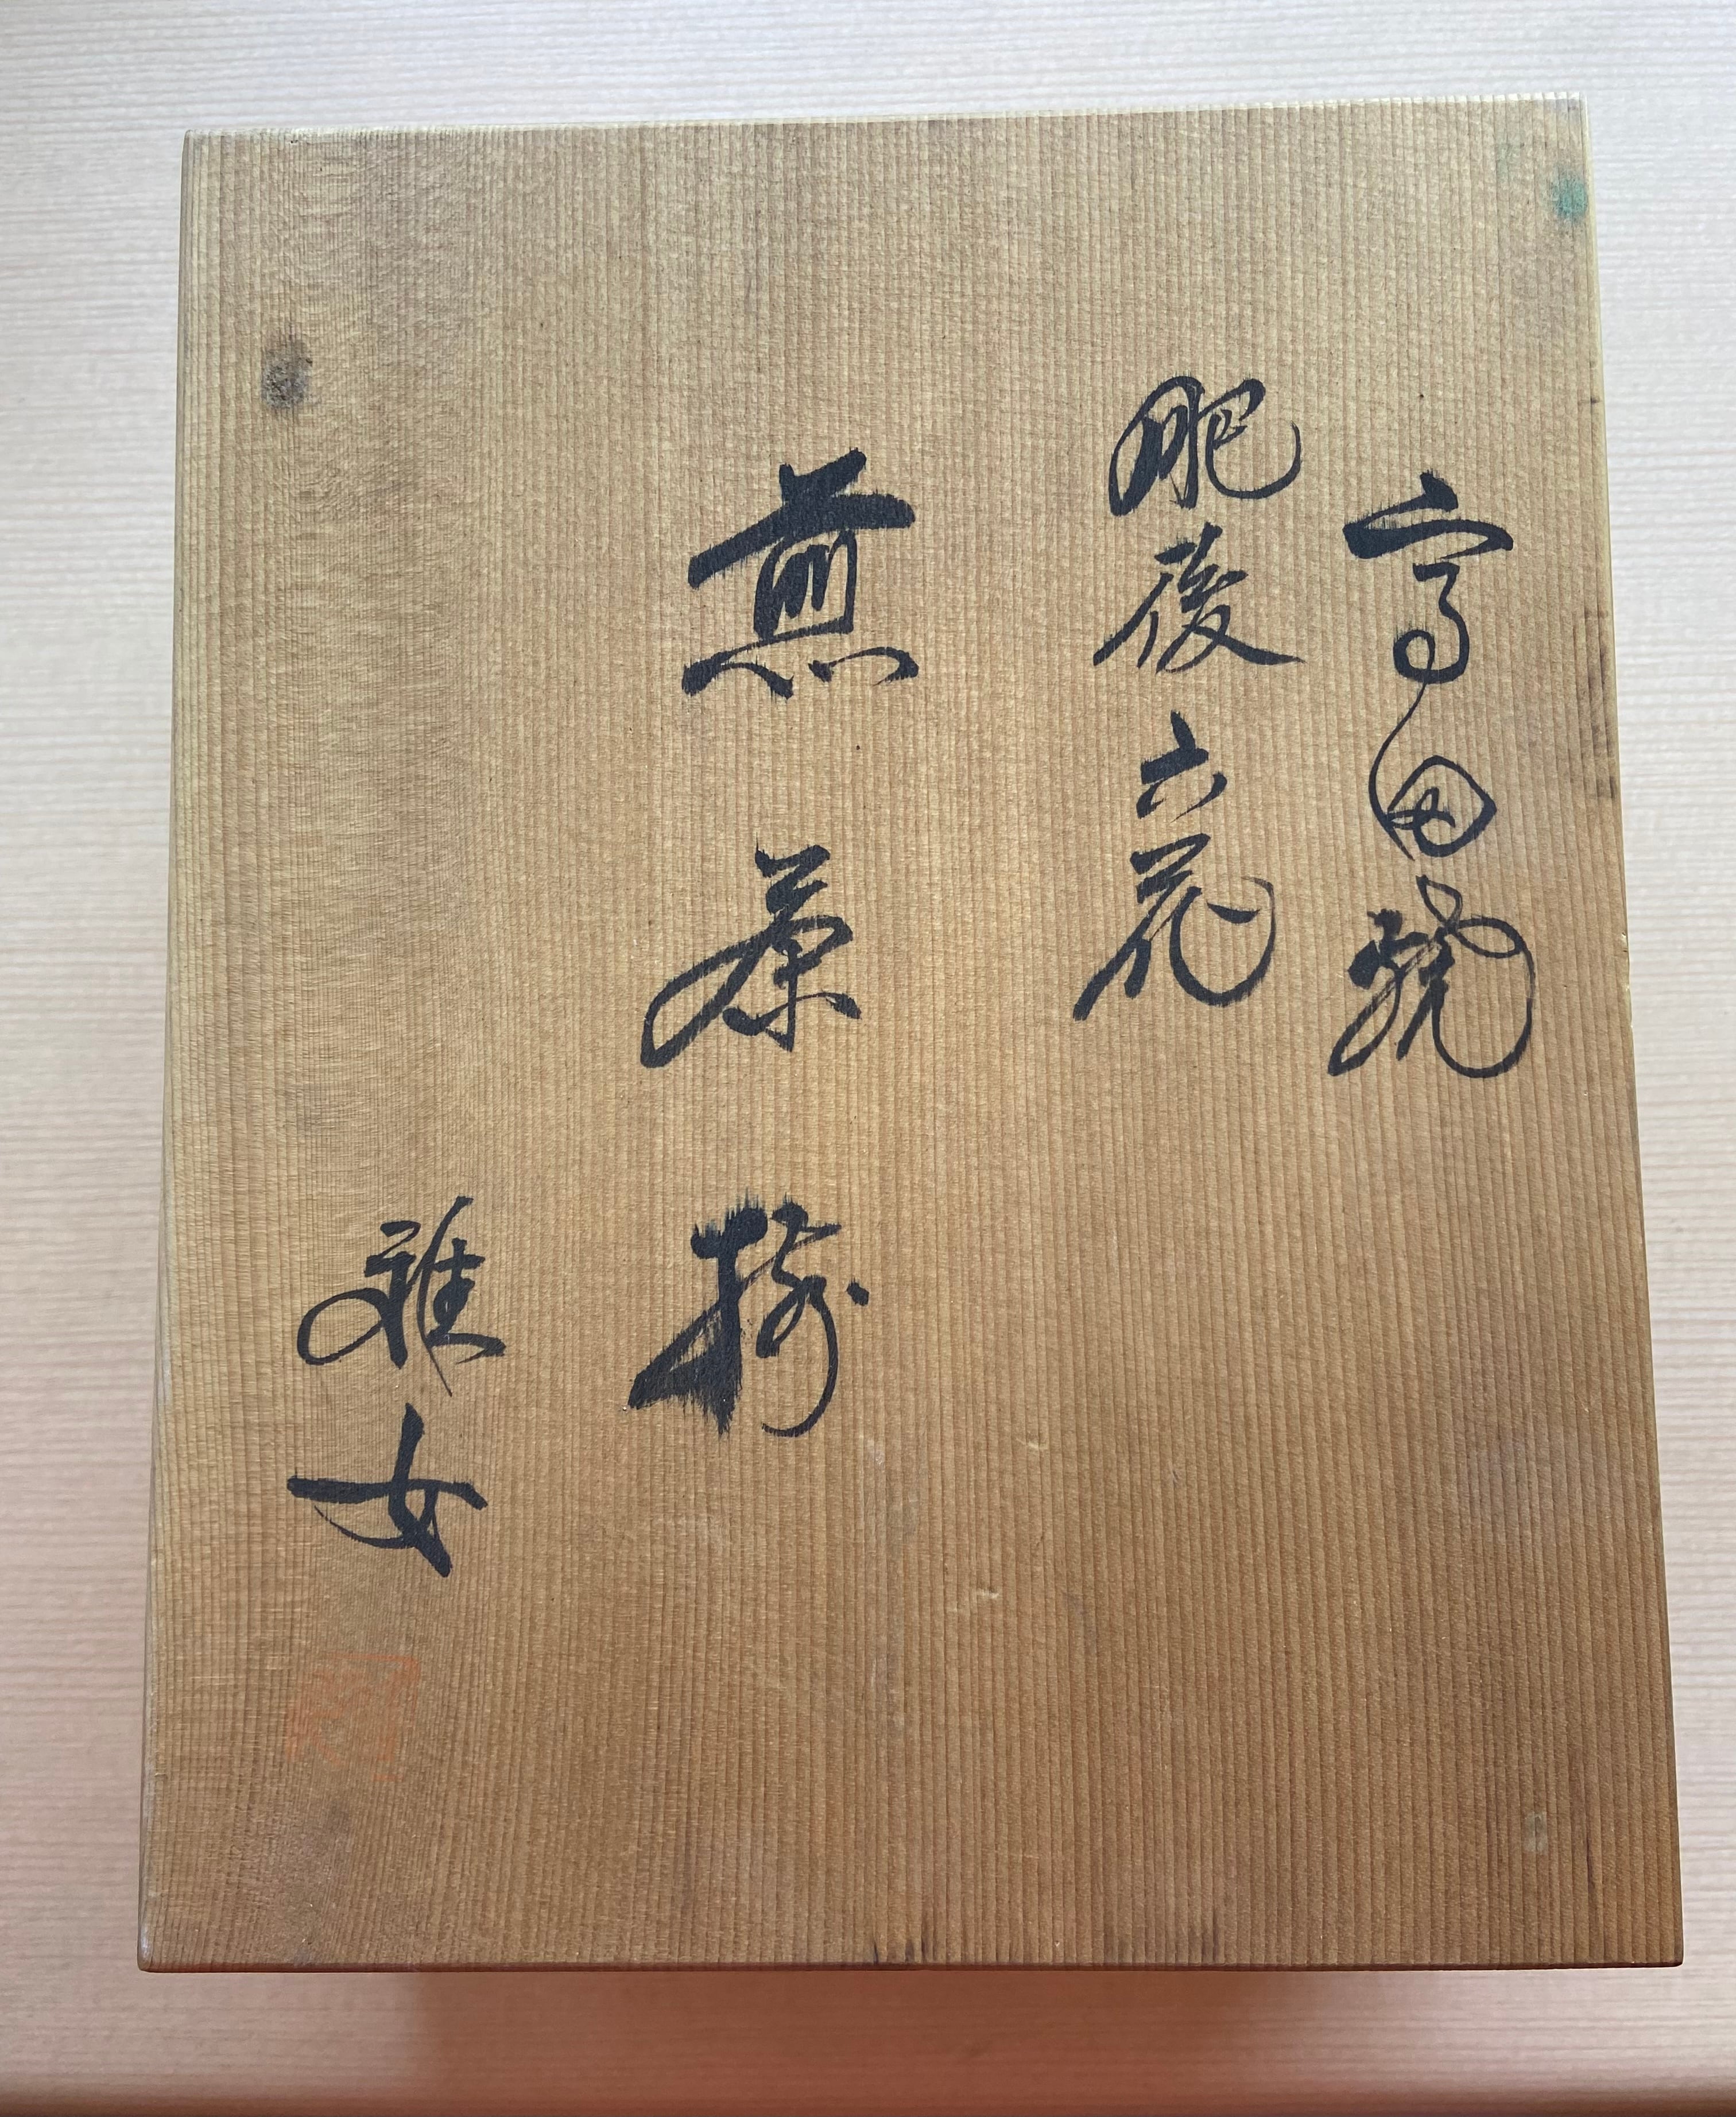 高田焼
肥後六花
煎茶揃
雅女